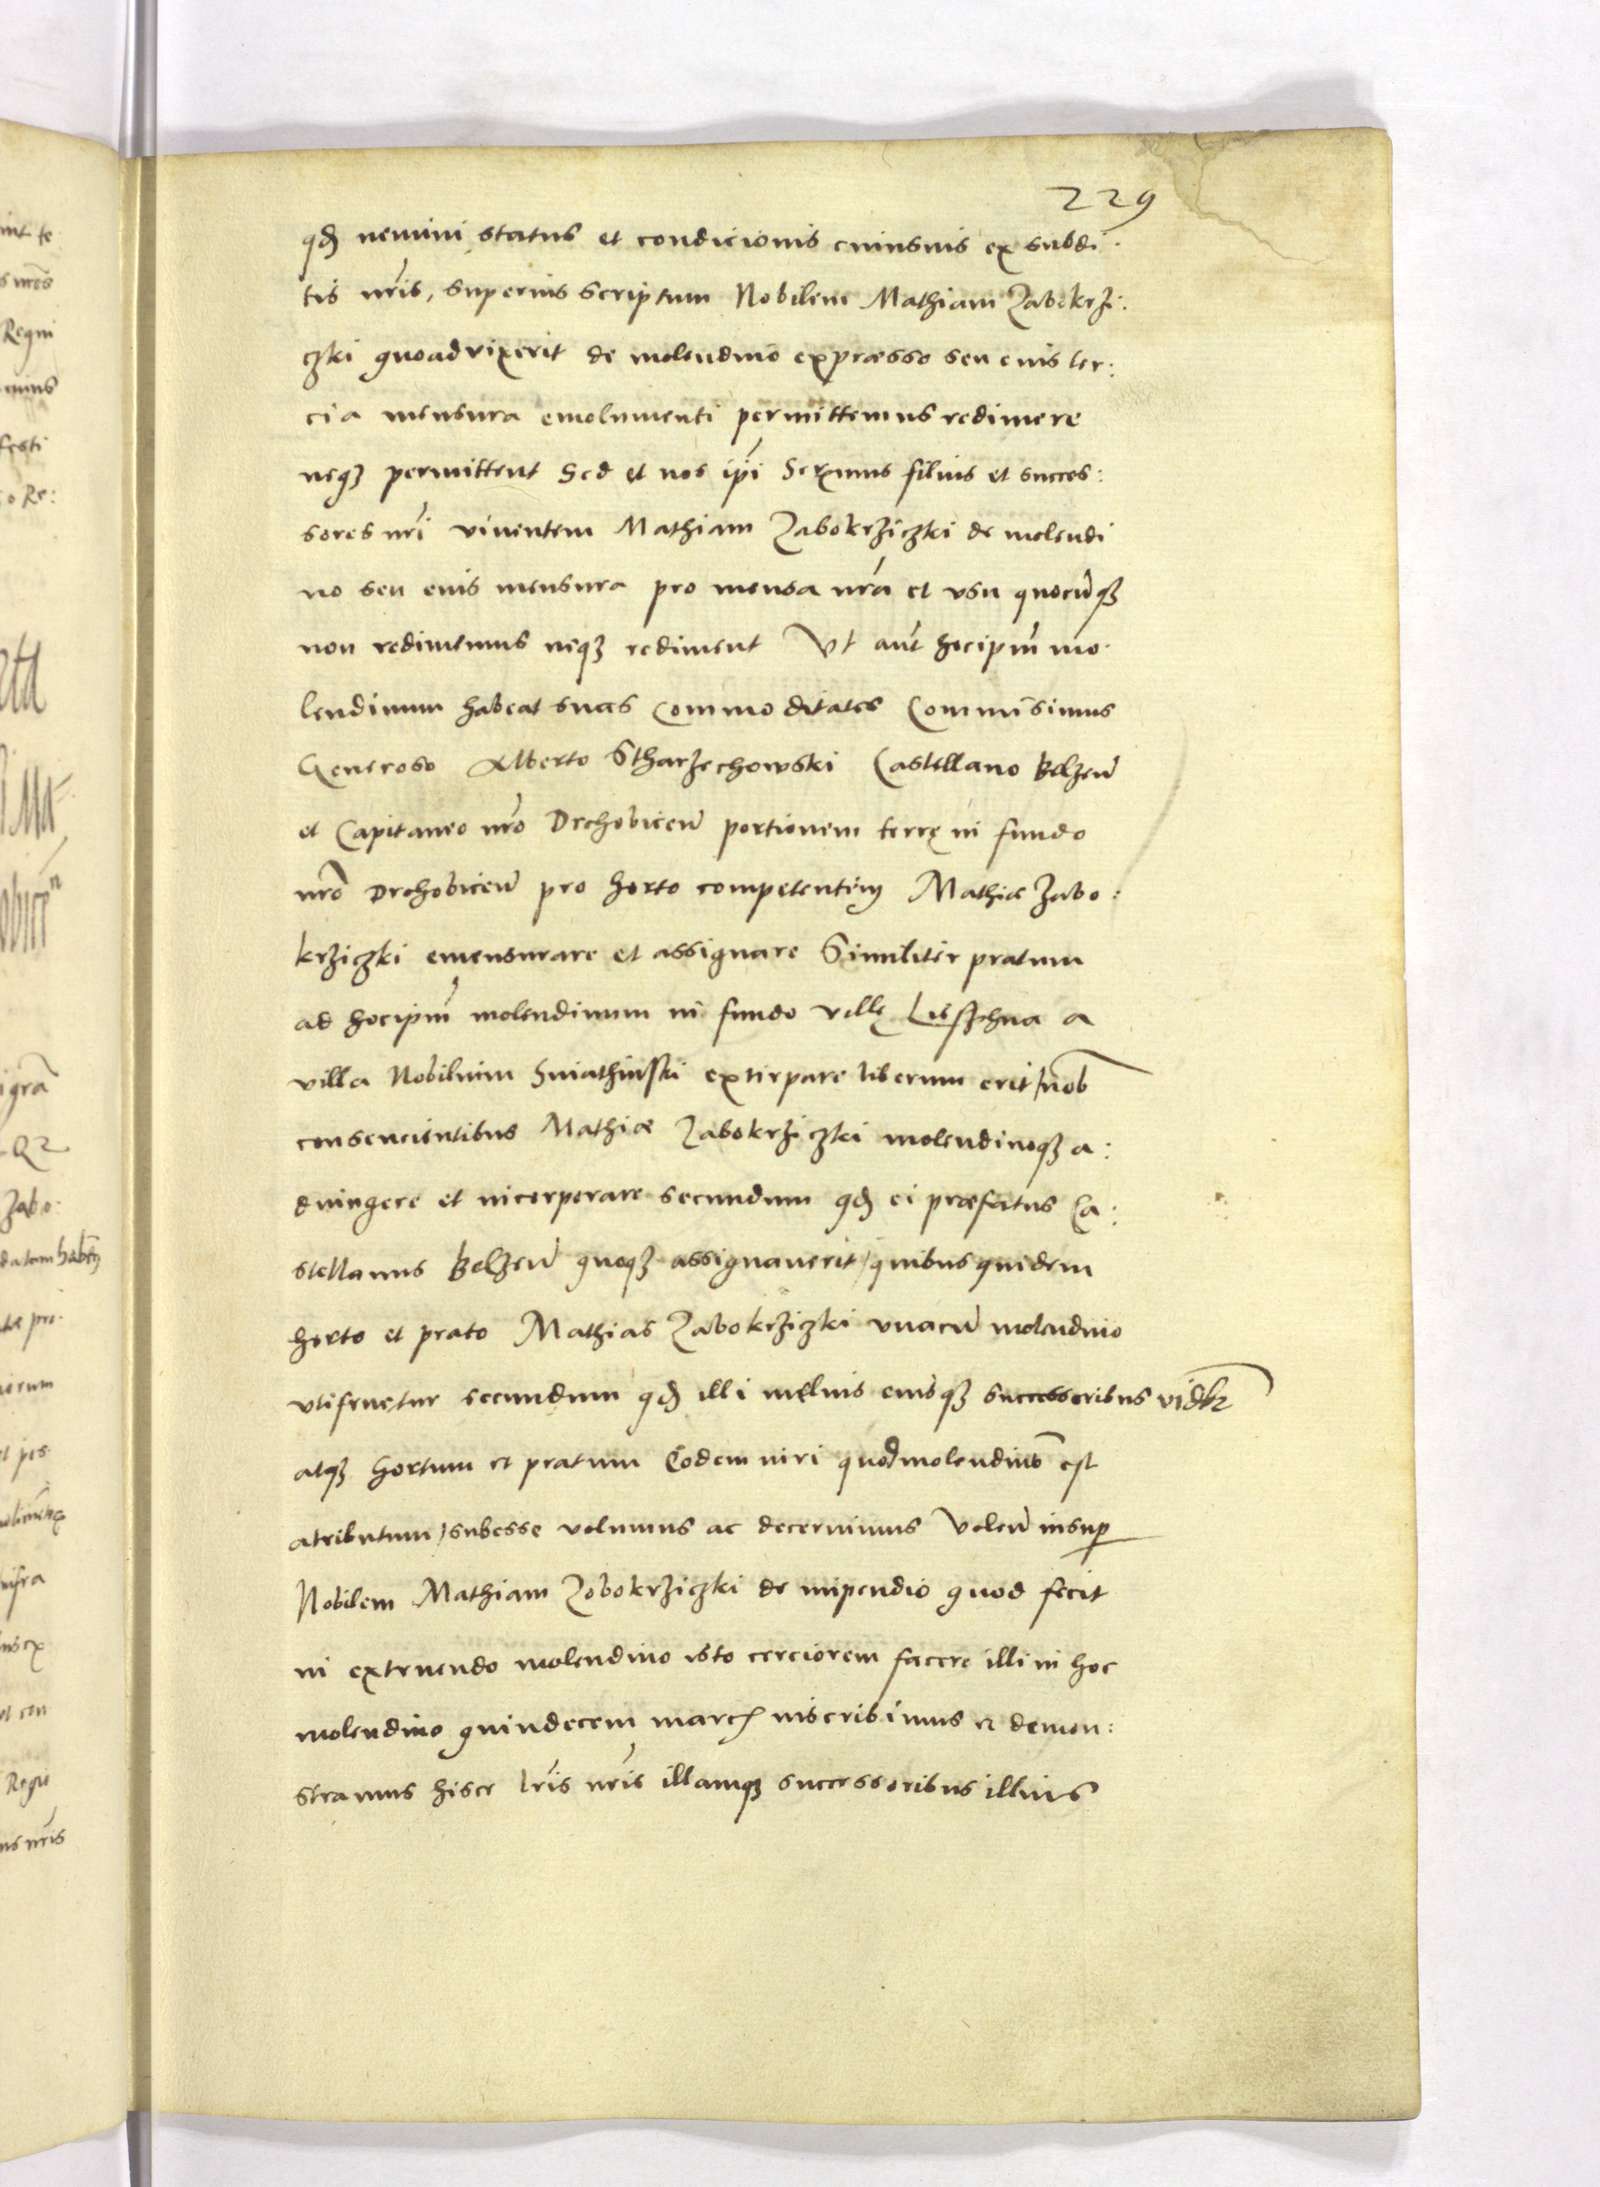 229
qd nemini status et condicionis cuiusuis ex subdi:
tis nris, superius scriptum Nobilem Mathiam Zabokrzi:
czki quoad vixerit de molendino expraesso seu eius ter:
cia mensura emolumenti permittemus redimere
neqz permittent Sed et nos ipi Sermus filius et succes:
sores nri viuentem Mathiam Zabokrziczki de molendi
no seu eius mensura pro mensa nra et vsu quocuqz
non redimemus neqz rediment Vt aut hocipm mo:
lendinum habeat suas Commoditates Commisimus
Generoso Alberto Stharzechowski Castellano Belzen
et Capitaneo nro Drohobicen portionem terrę in fundo
nro Drohobicen pro horto competentem Mathiæ Zabo:
krziczki emensurare et assignare Similiter pratum
ad hocipm molendinum in fundo villę Lisschna a
villa Nobilium Sniathinski extirpare liberum erit / nob
consencientibus Mathiæ Zabokrziczki molendinoqz a:
diungere et incorporare secundum qd ei præfatus Ca:
stellanus Belzen quoqz assignauerit / quibus quidem
horto et prato Mathias Zabokrziczki vnacu molendino
vtifruetur secundum qd illi melius eiusqz successoribus videbr
atqz hortum et pratum Eodem iuri quod molendino est
atributum / subesse volumus ac decernimus Volen insup
Nobilem Mathiam Zobokrziczki de inpendio quod fecit
in extruendo molendino isto cerciorem facere illi in hoc
molendino quindecem marcs inscribimus et demon:
stramus hisce lris nris illamqz successoribus illius